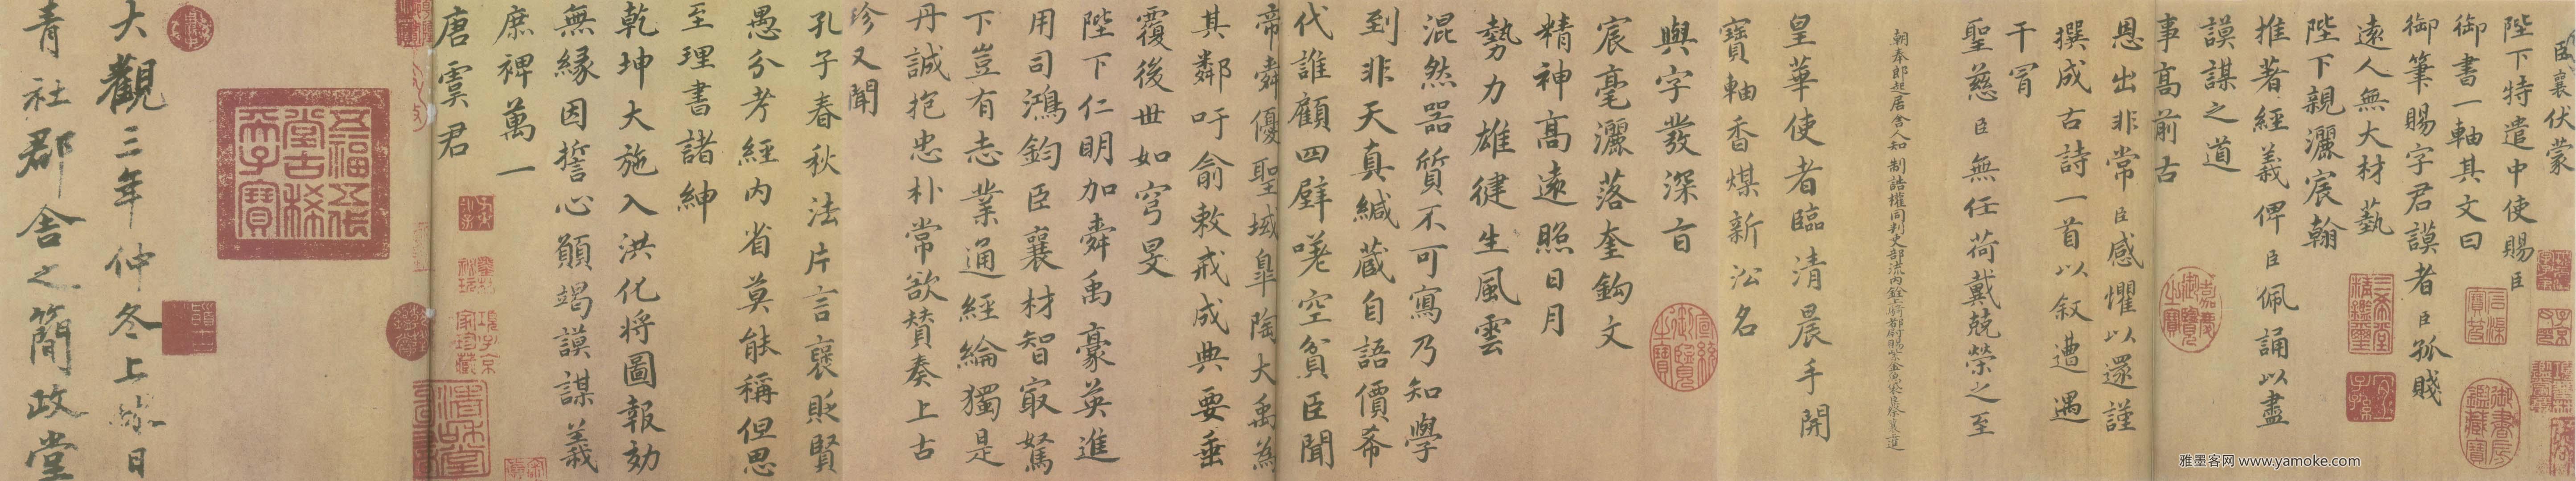 臣襄伏蒙
陛下特遣中使賜臣
御書一軸其文曰
御筆賜字君謨者臣孤賤
遠人無大材藝
陛下親灑宸翰
推著經義俾臣佩誦以盡
謨謀之道
事高前古
恩出非常臣感懼以還謹
撰成古詩一首以叙遭遇
干冒
聖慈臣無任荷戴兢榮之至
朝奉郎起居舍人知制誥權同判吏部流內銓上騎都尉賜紫金魚袋臣蔡襄進
皇華使者臨清晨手開
寶軸香煤新沁名
與字發深旨
宸毫灑落奎鈎文
精神高遠照日月
勢力雄健生風雲
混然器質不可寫乃知學
到非天真緘藏自語價希
代誰顧四壁嗟空貧臣聞
帝舜優聖域皐陶大禹為
其鄰吁俞敕戒成典要垂
覆後世如穹旻
陛下仁明加舜禹豪英進
用司鴻鈞臣襄材智㝡駑
下豈有志業通經綸獨是
丹誠抱忠朴常欲贊奏上古
珍又聞
孔子春秋法片言褒貶賢
愚分考經內省莫能稱但思
至理書諸紳
乾坤大施入洪化將圖報効
無緣因誓心願竭謨謀義
庶裨萬一
唐虞君
五福五代
堂古稀
天子寶
大觀三年仲冬上澣日
青社郡舍之簡政堂
雅墨客网 www.yamoke.com